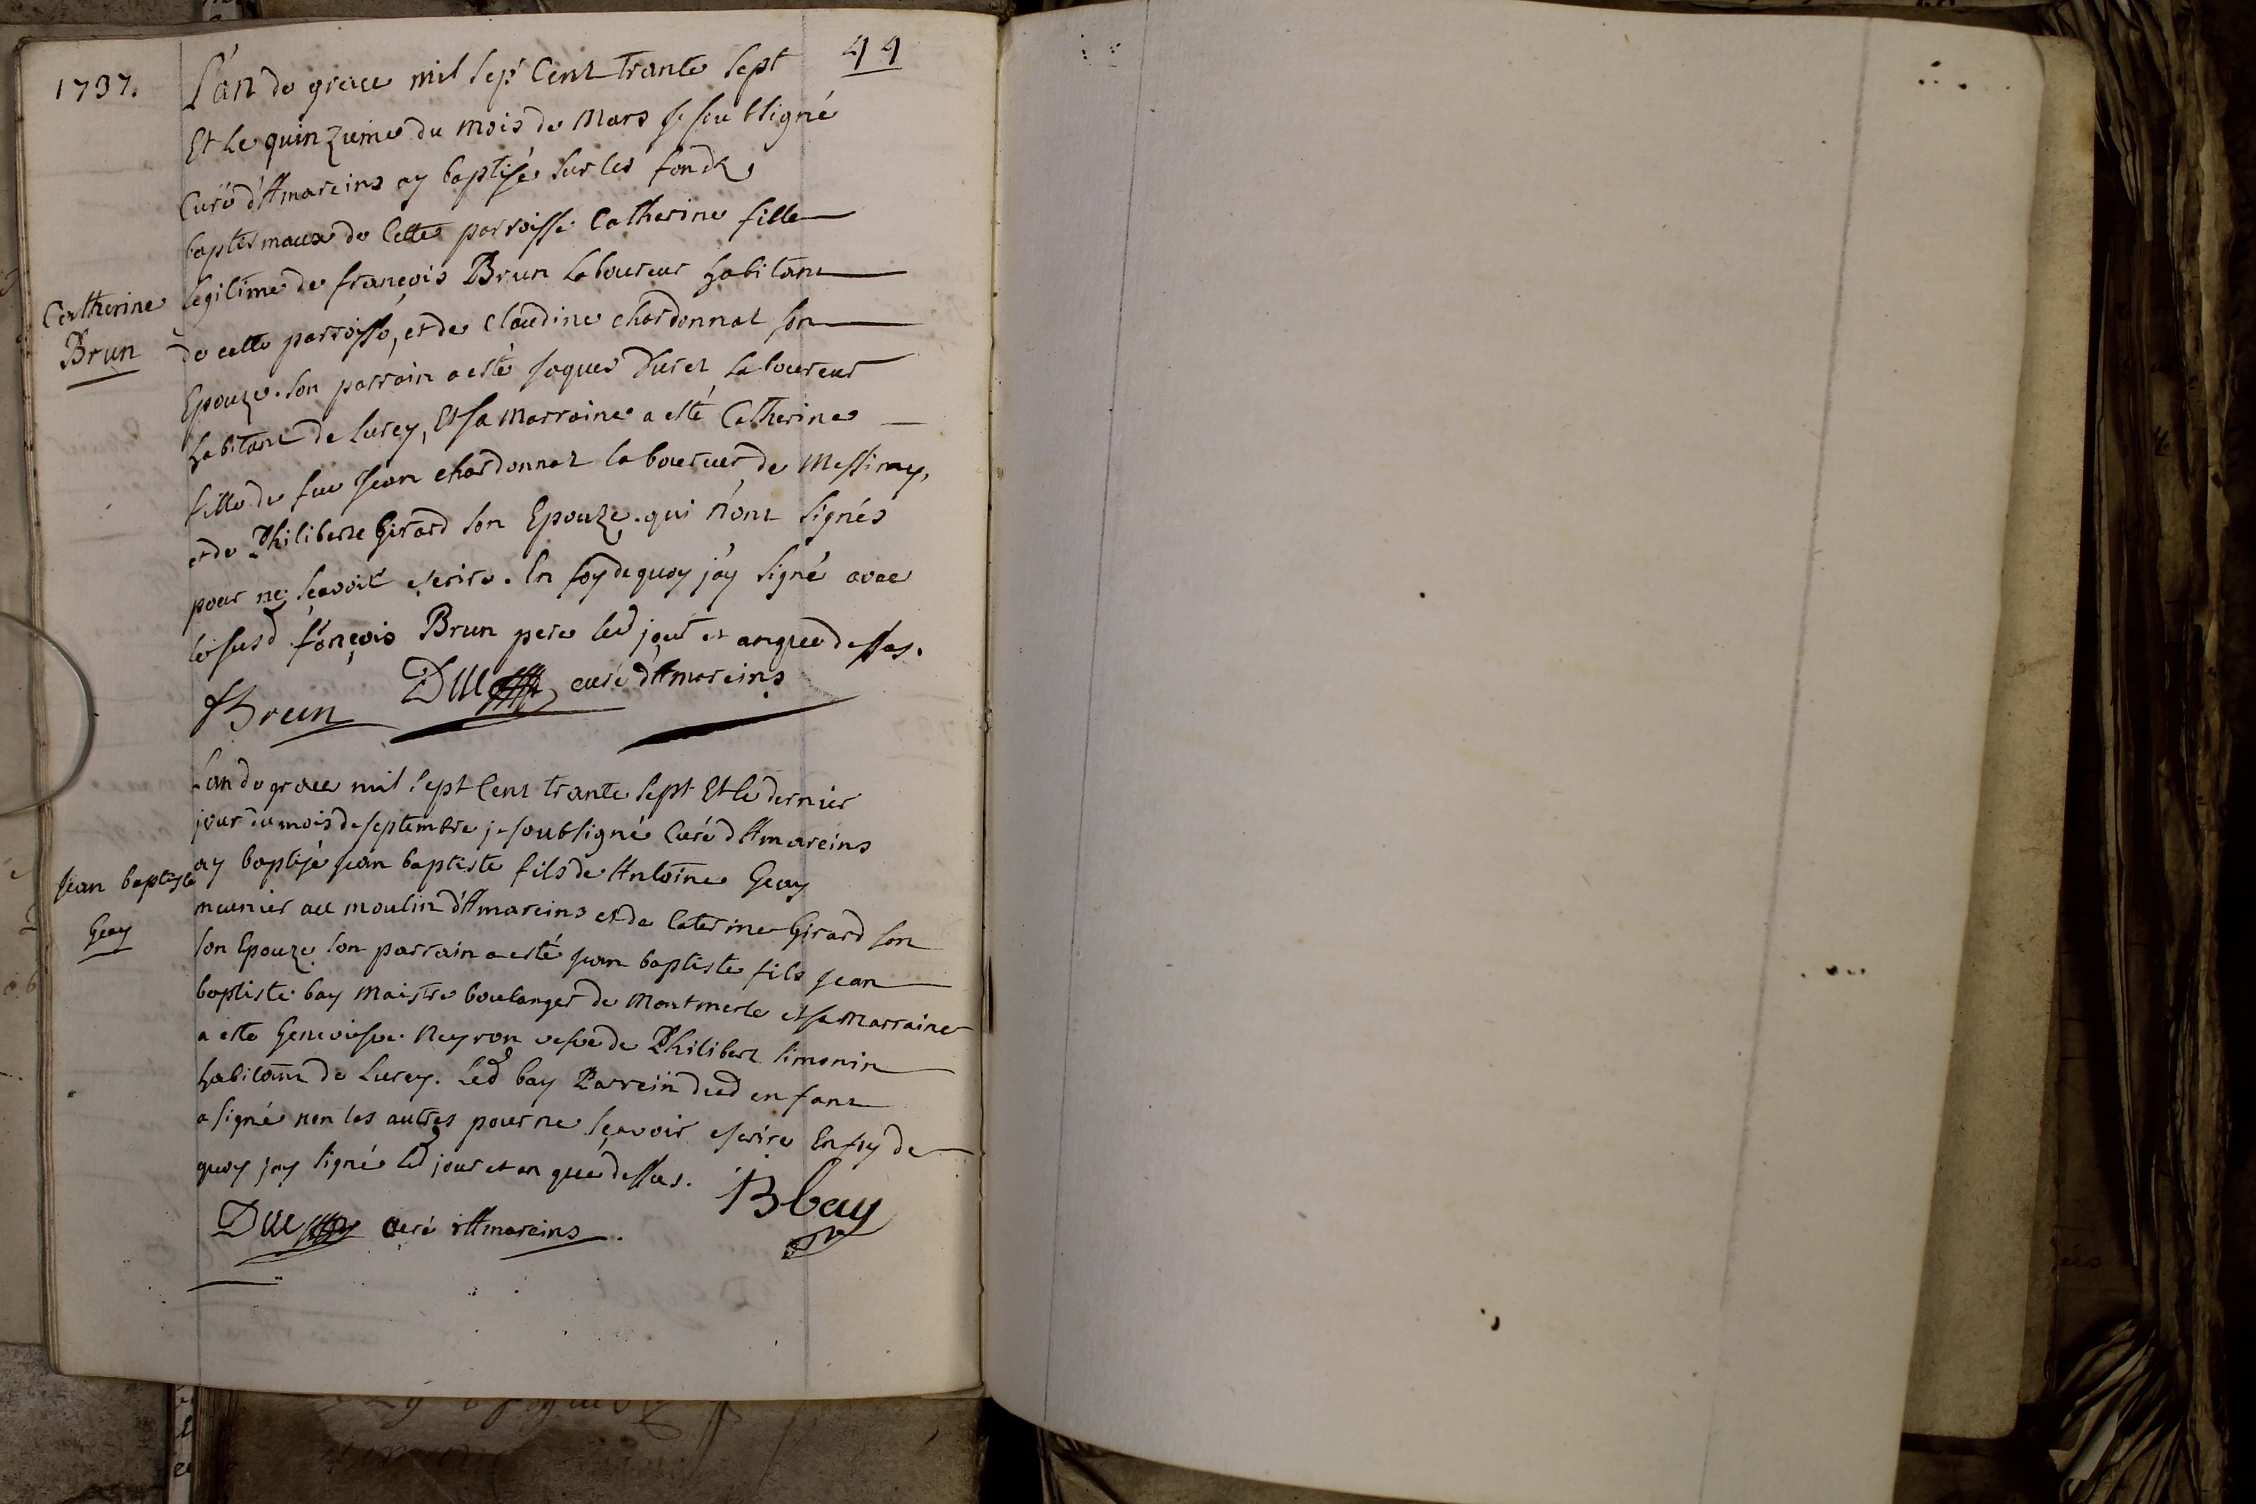 44
1737.
L'an de grace mil sept Cent trante sept
Et le quinzieme du mois de Mars je soubsigné
Curé d'Amareins ay baptisé sur les fonds
baptismaux de Cette parroisse Catherine fille
legitime de françois Brun laboureur habitant
Catherine
Brun
de cette parroisse, et de Claudine chardonnat son
Epouze. son parrain a esté Jaques Duret laboureur
habitant de Lurey, Et sa Marraine a esté Catherine
fille de feu Jean chardonnat laboureur de Messimy,
et de Philiberte Girard son Epouze. qui n'ont signés
pour ne sçavoir escrire. En foy de quoy j'ay signé avec
le susd françois Brun pere led jour et an que dessus.
fBrun
curé d'Amareins
L'an de grace mil sept Cent trante sept Et le dernier
jour du mois de septembre je soubsigné Curé d'Amareins
ay baptisé Jean baptiste fils de Antoine Geay
Jean baptiste
Geay
meunier au moulin d'Amareins et de Caterine Girard son
son Epouze son parrain a esté Jean baptiste fils Jean
baptiste bay Maistre boulanger de Montmerle et sa Marraine
a esté Genevieve Neyron vefve de Philibert Simonin
habitant de Lurey. Led bay Parrein dud enfant
a signé non les autres pour ne sçavoir escrire En foy de
quoy j'ay signé led jour et an que dessus.
Bbay
curé d'Amareins.